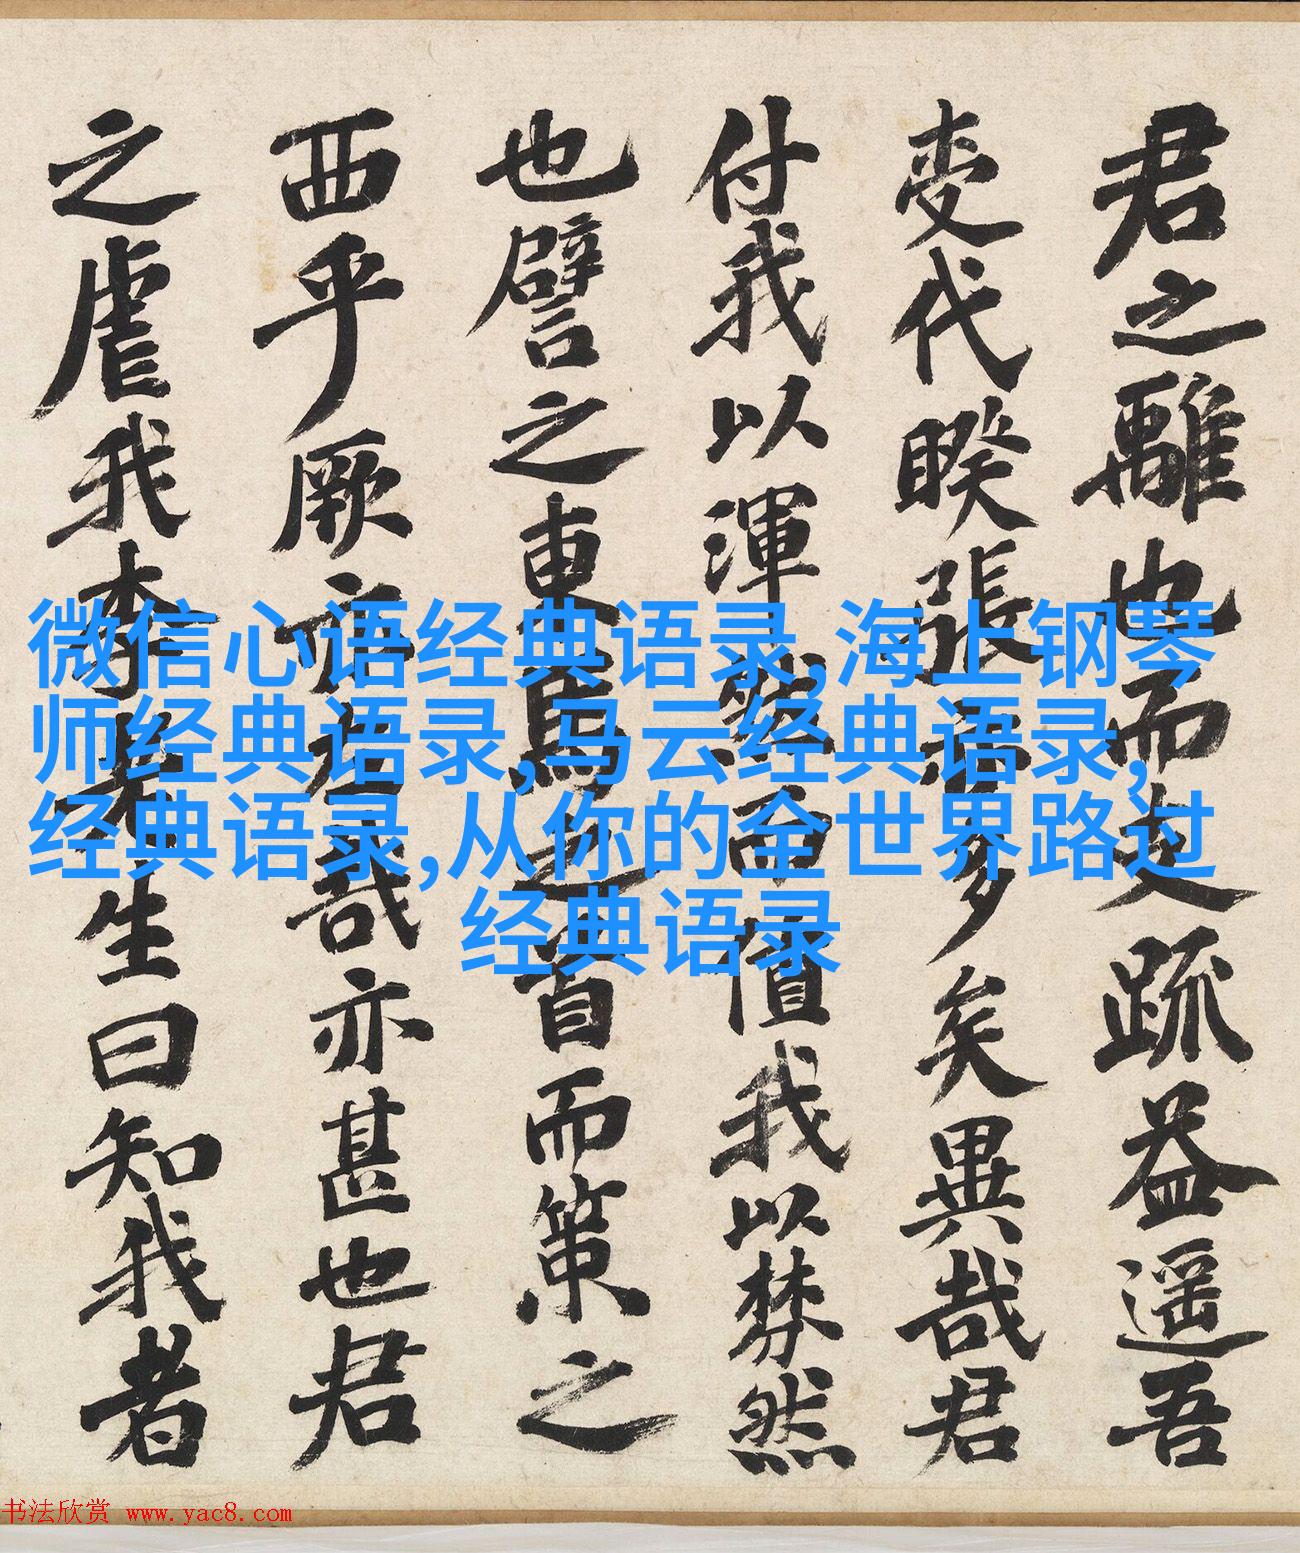 君之離也而交疏益遥吾
代睽張多矣異哉君
付我以渾然而值我以棼然
也譬之東馬之首而策之
西乎厥哉亦甚也君
之虐我李先生曰知我者
微信心语经典语录,海上钢琴
师经典语录,马云经典语录,
经典语录,从你的全世界路过
经典语录
书法欣赏 www.yac8.com